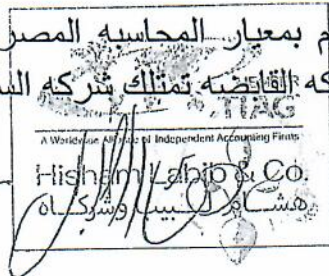 م بمعيار المحاسبة المصر
كه القابضة تمتلك شركه الس
TIAG
A Worldwide Alliance of Independent Accounting Firms
Hisham Labib & Co.
هشام لبيب وشركاه